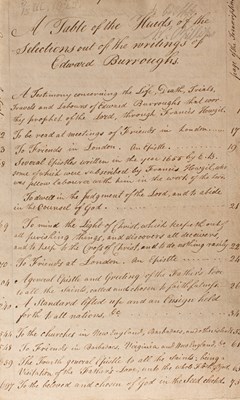 A Table of the Heads of the
Selections out of the writings of
Edward Burroughs.
A Testimony concerning the Life, Death, Trials,
Travels and Labours of Edward Burroughs that wor-
thy prophet of the Lord, through Francis Howgil
To the several meetings of Friends in London
To Friends in London. An Epistle.
Several Epistles written in the year 1655 by E.B.
some of which were subscribed by Francis Howgil who
was fellow labourer with him in the work of the Lord
To dwell in the judgment of the Lord, and to abide
in the Counsel of God
To mind the Light of Christ, which keeps the mind
and to keep to the Cross of Christ, and to do nothing rashly
To Friends at London. An Epistle
A general Epistle and Greeting of the Father's love
to all the saints, called and chosen to faithfulness
A Standard lifted up and an Ensign held
forth to all nations, &c
To the churches in New England, Barbadoes, and
To Friends in Barbadoes, Virginia, and New England, &c
The Fourth general Epistle to all the Saints; being a
Visitation of the Father's Love, unto the whole
To the beloved and chosen of God in the seed elected